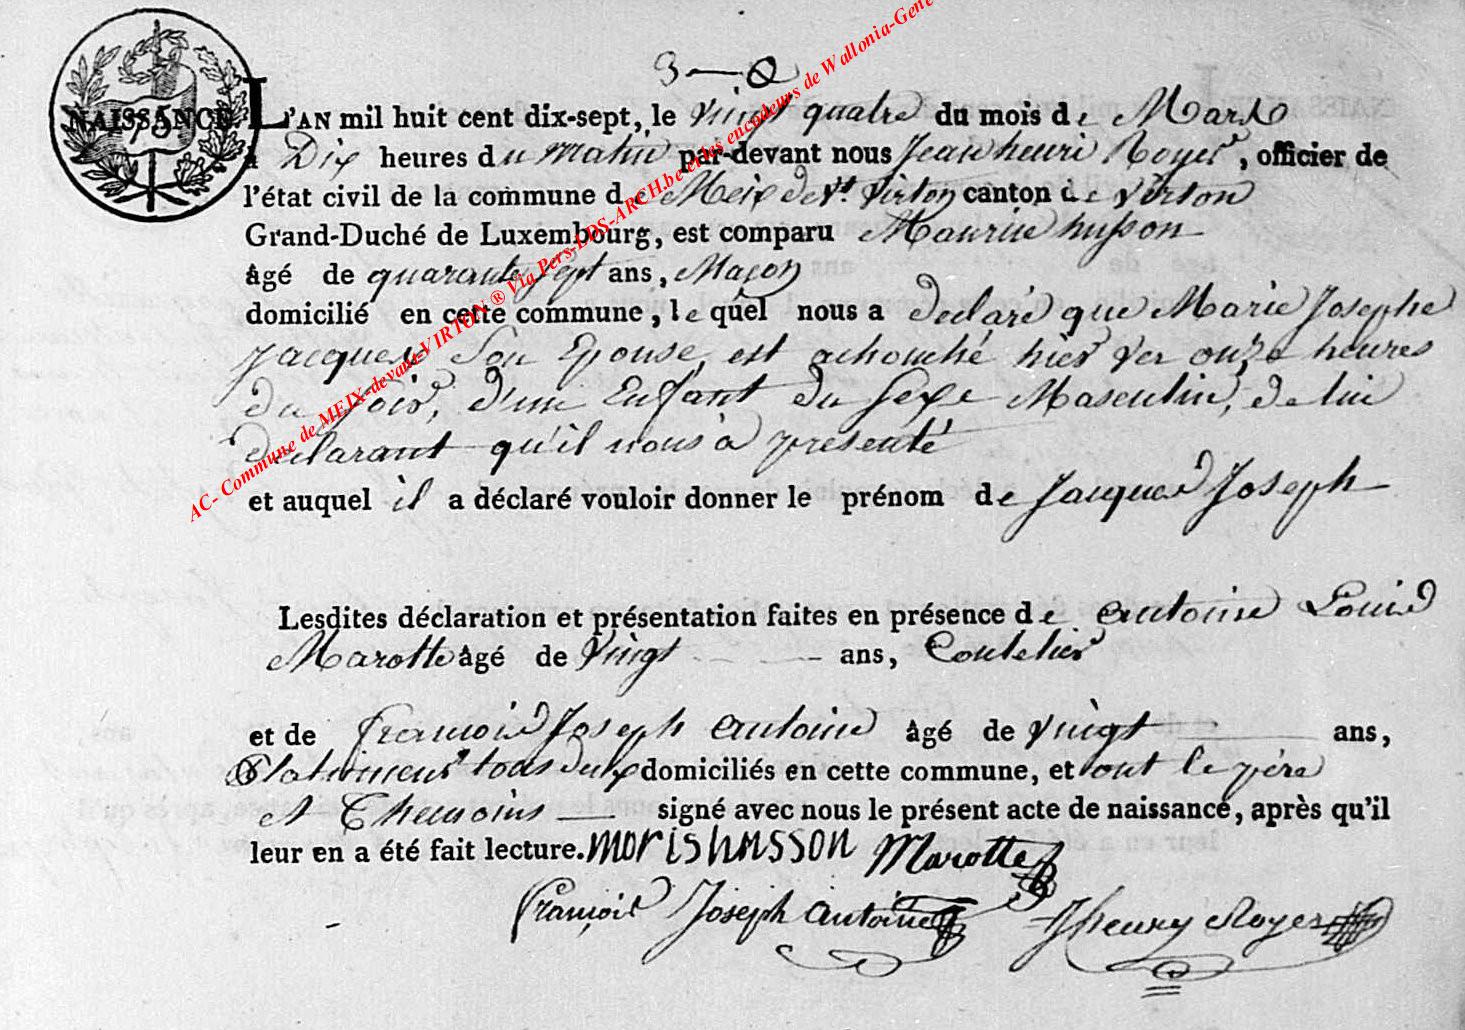 3
NAISSANCE 75
L'AN mil huit cent dix-sept, le vingt quatre du mois de Mars
à Dix heures du matin par-devant nous Jean henri Royer, officier de
l'état civil de la commune de Meix devt. Virton canton de Virton
Grand-Duché de Luxembourg, est comparu Maurice husson
âgé de quarante sept ans, Maçon
domicilié en cette commune, le quel nous a declaré que Marie Josephe
Jacques Son Epouse, est achouché hier ver onze heures
du soir, d'un Enfant du Sexe Masculin, de lui
declarant qu'il nous à presenté
et auquel il a déclaré vouloir donner le prénom de Jacques Joseph
Lesdites déclaration et présentation faites en présence de antoine Louis
Marotte âgé de Vingt ans, Coutelier
et de francois Joseph antoine âgé de vingt ans,
tous deux domiciliés en cette commune, et ont le père
et Themoins signé avec nous le présent acte de naissance, après qu'il
leur en a été fait lecture. moris husson Marotte
françois Joseph antoine Jhenry Royer
AC- Commune de MEIX-devant-VIRTON ® Via Pers-LDS-ARCH.be et les encodeurs de Wallonia-Gene